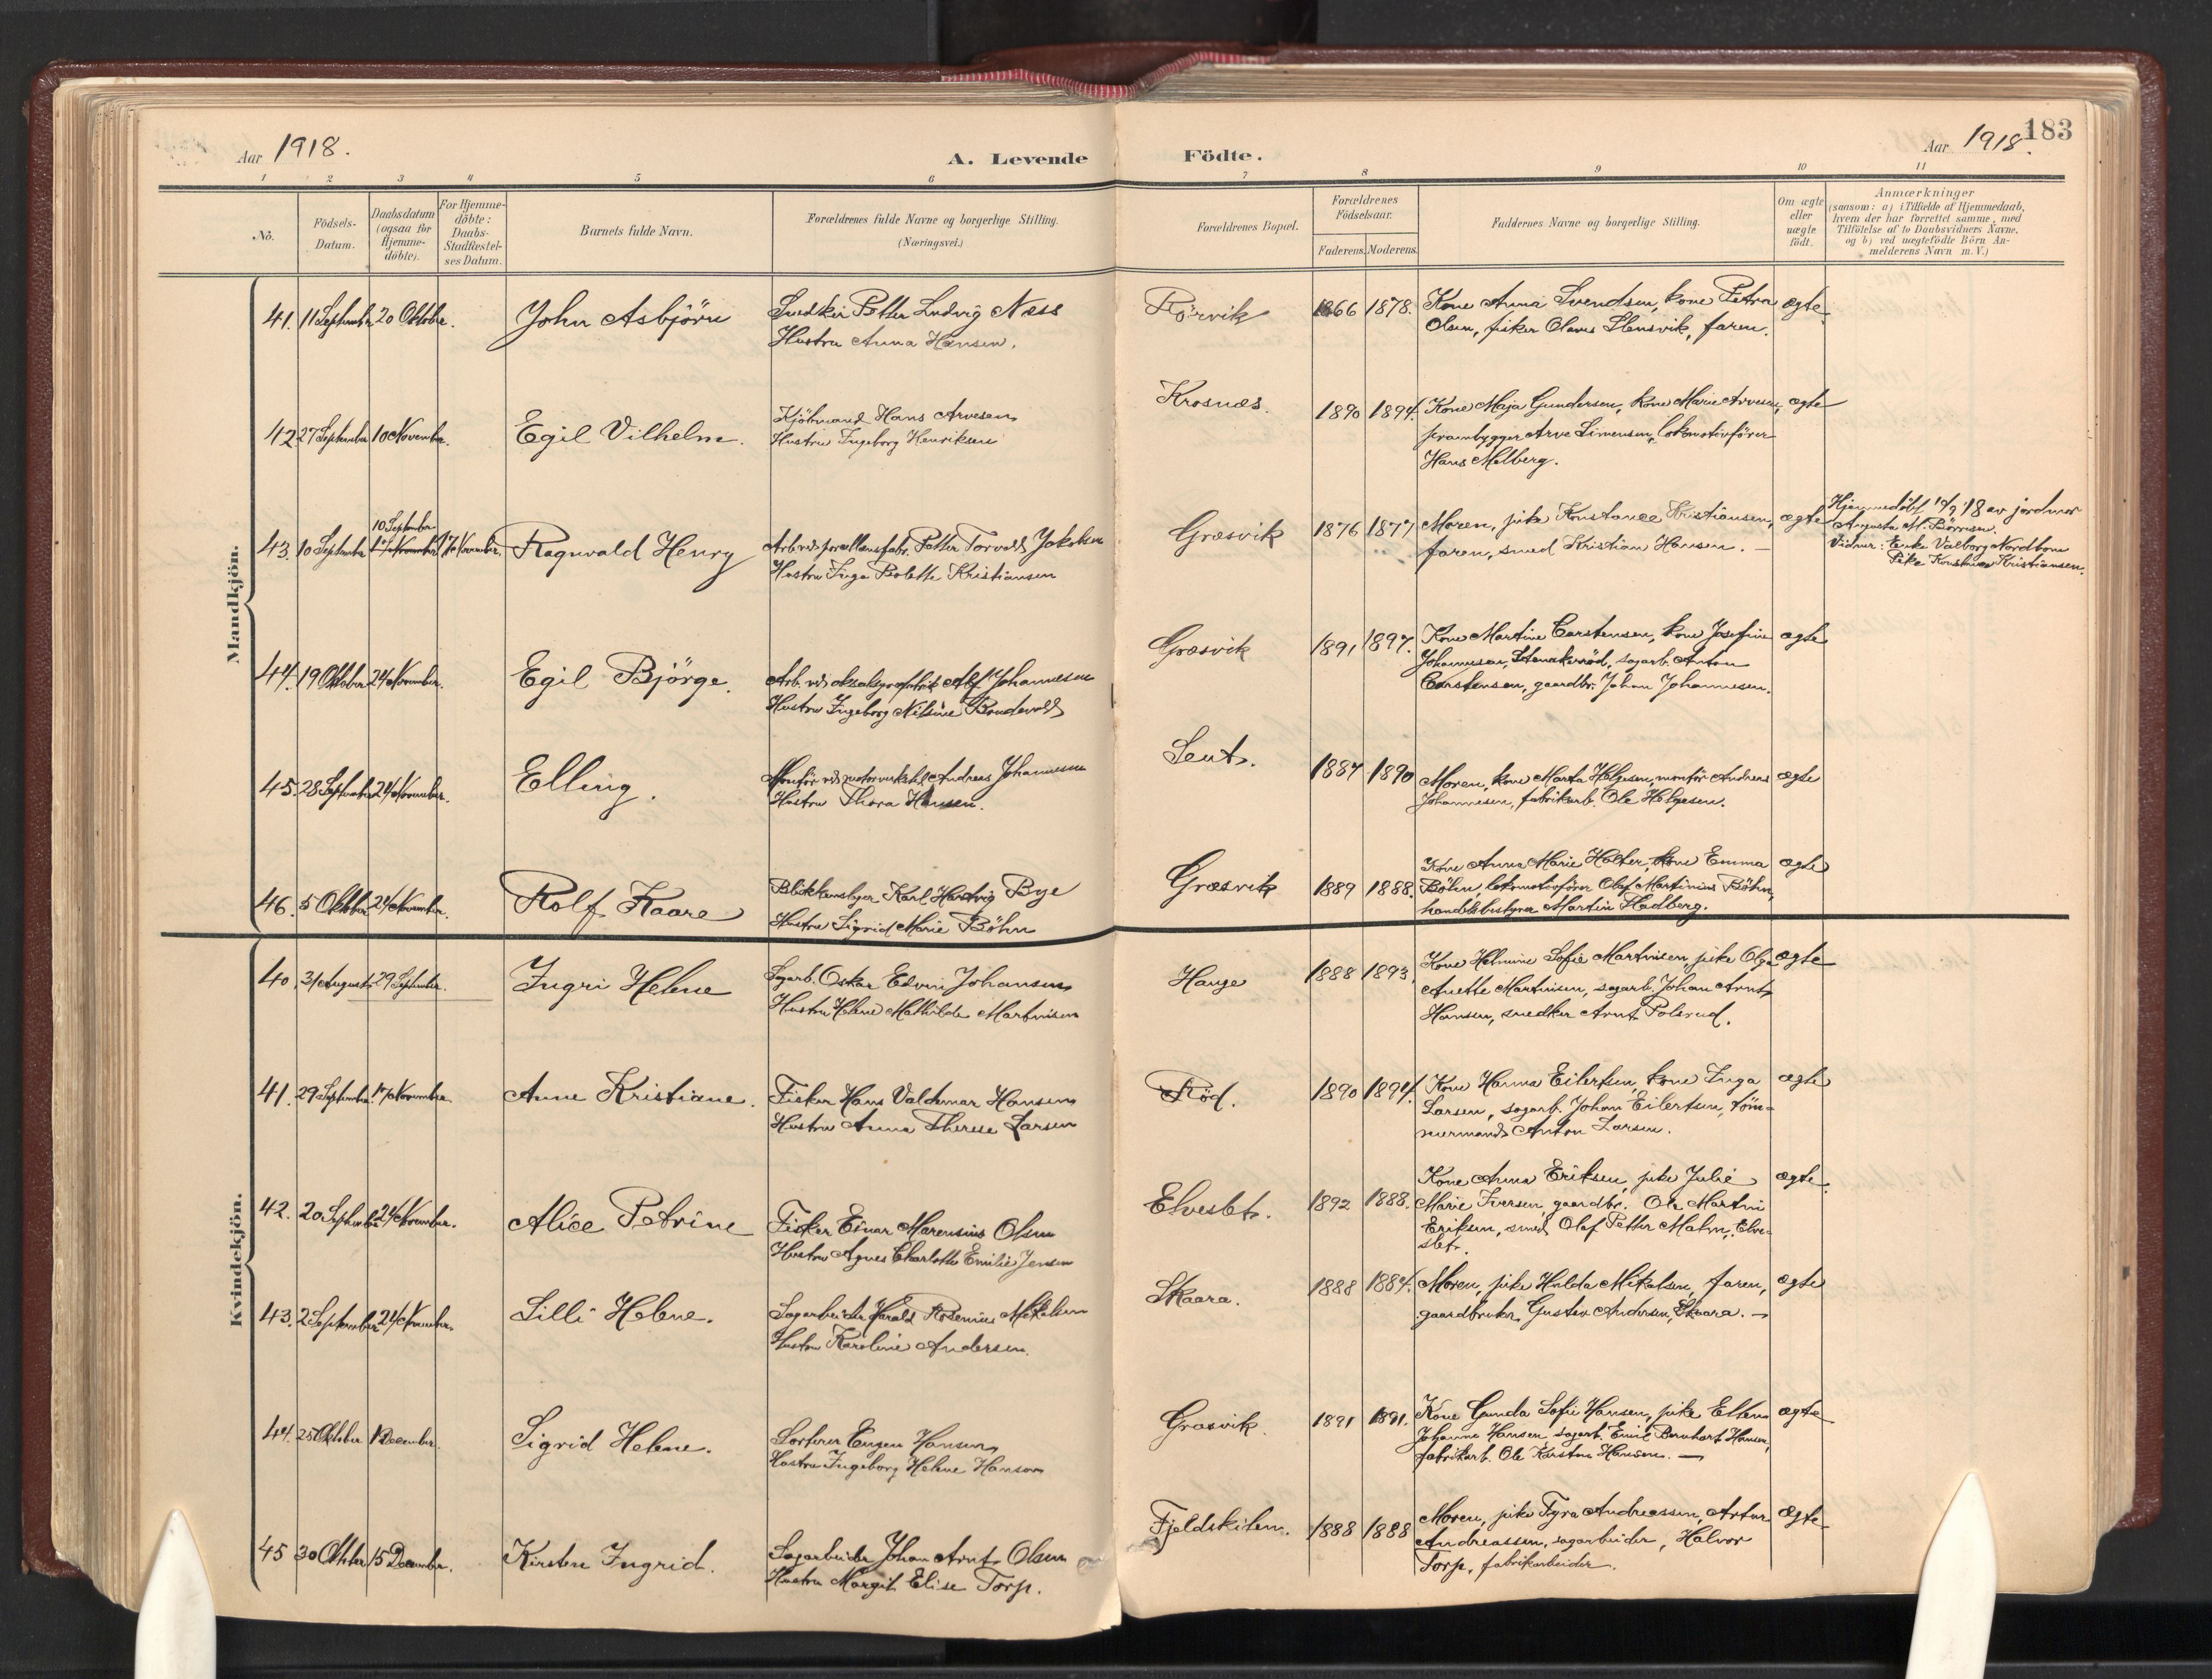 Aar 1918.
A. Levende
Födte.
Aar 1918.
183
1 2 3 4 5 6 7 8 9 10 11
No.
Födsels-
Datum.
Daabsdatum
(ogsaa for
Hjemme-
döbte).
For Hjemme-
döbte:
Daabs-
Stadfæstel-
ses Datum.
Barnets fulde Navn.
Forældrenes fulde Navne og borgerlige Stilling.
(Næringsvei.)
Forældrenes Bopæl.
Forældrenes
Födselsaar.
Faderens. Moderens.
Faddernes Navne og borgerlige Stilling.
Om ægte
eller
uægte
født.
Anmærkninger
(saasom: a) i Tilfælde af Hjemmedaab,
hvem der har forrettet samme, med
Tilföielse af to Daabsvidners Navne,
og b) ved uægtefödte Börn An-
melderens Navn m. V.)
Mandkjön.
41. 11 September 20 Oktober. John Asbjörn
Snedker Petter Ludvig Næss
Hustru Anna Hansen.
Rørvik 1866 1878.
Kone Anna Svendsen, kone Petra
Olsen, fisker Olaves Stensvik, faren.
ægte
42 27 September 10 November. Egil Vilhelm.
Hans Arvesen
Hustru Ingeborg Henriksen
Krosnæs. 1890 1894.
Kone Maja Gundersen, kone Marie Arvesen,
prambygger Arve Simensen, lokomotivfører
Hans Melberg.
ægte
43. 10 September
10 September
17 November
17 November. Ragnvald Henry
Arb. ved porcellænsfabr. Petter Torvald Jakobsen
Hustru Inga Bolette Kristiansen
Græsvik 1876 1877
Moren, pike Konstance Kristiansen,
faren, smed Kristian Hansen. —
ægte
Hjemmedøbt 10/9 18 av jordmor
Augusta M. Børresen.
Vidner: Enke Valborg Nordbom
Pike Konstance Kristiansen.
44. 19 Oktober 24 November. Egil Björge.
Arb. ved Alf Johannesen
Hustru Ingeborg Nilsine Brudevold
Græsvik 1891 1897.
Kone Martine Carstensen, kone Josefine
Johannesen, sagarb. Anton
Carstensen, gaardbr. Johan Johannesen.
ægte
45. 28 September 24 November. Elling.
Montør ved motorverksted Andreas Johannesen
Hustru Thora Hansen.
Lent. 1887 1890
Moren, kone Marta Helgesen, montör Andreas
Johannesen, fabrikarb. Ole Helgesen.
ægte
46. 5 Oktober 24 November. Rolf Kaare
Blikkenslager Karl Hartvig Bye
Hustru Sigrid Marie Böhn
Græsvik 1889 1888.
Kone Anna Marie Holter, kone Emma
Böhn, lokomotivfører Olaf Martinius Böhn,
handelsbestyrer Martin Hedberg.
ægte
Kvindekjön.
40. 31 August 29 September. Ingri Helene
Sagarb. Oskar Edvin Johansen
Hustru Helene Mathilde Martinisen
Hauge 1888 1893
Kone Helmine Sofie Martinisen, pike Olga
Anette Martinisen, sagarb. Johan Arnt
Hansen, snedker Arnt Polerud.
ægte
41. 29 September 17 November. Anne Kristiane.
Fisker Hans Valdemar Hansen
Hustru Anna Therese Larsen
Röd. 1890 1894.
Kone Hanna Eilertsen, kone Inga
Larsen, sagarb. Johan Eilertsen, töm-
mermand Anton Larsen.
ægte
42. 20 September 24 November. Alice Petrine
Fisker Einar Marensius Olsen
Hustru Agnes Charlotte Emilie Jensen
Elveslet. 1892 1888.
Kone Anna Eriksen, pike Julie
Marie Iversen, gaardbr. Ole Martin
Eriksen, smed Olaf Petter Malm, Elve-
slet.
ægte.
43. 2 September 24 November. Lilli Helene.
Sagarbeider Harald Rosenius Mikalsen
Hustru Karoline Andersen.
Skaara. 1888 1884.
Moren, pike Hulda Mikalsen, faren,
gaardbruker Gustav Andersen, Skaara. —
ægte
44. 25 Oktober 1 December. Sigrid Helene.
Sorterer Eugen Hansen
Hustru Ingeborg Helene Hanson
Græsvik. 1891 1891.
Kone Gunda Sofie Hansen, pike Ellen
Johanne Hansen sagarb. Emil Bernhart Hansen,
fabrikarb. Ole Karsten Hansen. —
ægte
45 30 Oktober 15 December. Kirsten Ingrid.
Sagarbeider Johan Arnt Olsen
Hustru Margit Elise Torp.
Fjeldskilen. 1888 1888
Moren, pike Fyra Andreassen, Artur
Andreassen, sagarbeider, Halvor
Torp, fabrikarbeider.
ægte